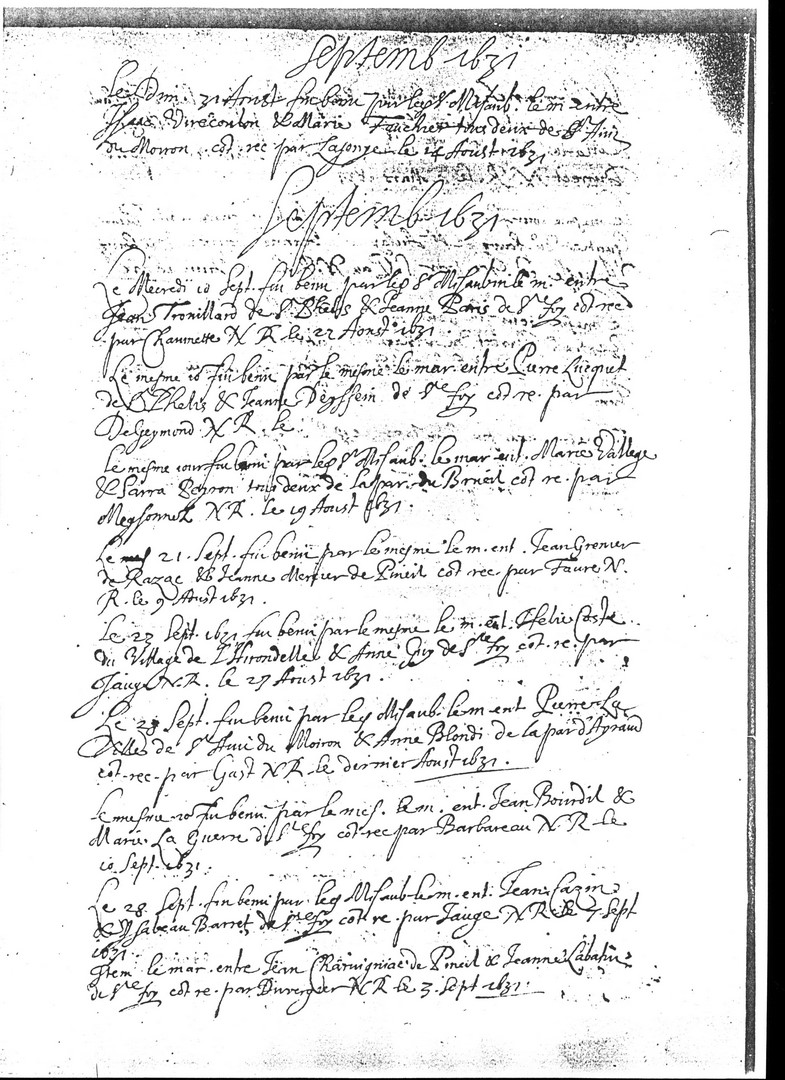 Septemb 1631
Le Dim. 31 Aoust fut beni par le sr Misaub. le m. entre
Isaac Virecoulon & Marie Fouchier tous deux de St Avi
du Moiron. cot. rec par Lajonye le 14 Aoust 1631
Septemb 1631
Le Mecredi 10 Sept. fut beni par le sr Misaubin le m. entre
Jean Trouillard de St Phelis & Jeanne Paris de Ste foy cot rec
par Chaumette N R. le 22 Aoust 1631.
Le mesme 10 fut beni par le mesme le mar. entre Pierre Lucquet
de St Phelis & Jeanne de Ste foy cot re. par
Degeymond N R. le
le mesme jour fut beni par le sr Misaub. le mar ent. Marie Vallege
& Sarra Peyron tous deux de la par. du Brueil cot re. par
Meysonnet N R. le 19 Aoust 1631.
Le 21. Sept. fut beni par le mesme le m. ent. Jean Grenier
de Razac & Jeanne Mercier de Pineil cot rec. par Faure N.
R. le 9 Aoust 1631.
Le 23 Sept. 1631 fut beni par le mesme le m. ent. Helie Coste
du Village de L'Hirondelle & Anne Guy de Ste foy cot. re. par
Jauge N. R. le 27 Aoust 1631.
Le 28 Sept. fut beni par le sr Misaub. le m ent Pierre La
Ville de St Avi du Moiron & Anne Blondi de la par d'Ayraud
cot. rec. par Gast N R le dernier Aoust 1631.
le mesme jo fut beni. par le mes. le m. ent. Jean Bourdil &
Marie La Guerre de Ste foy cot rec par Barbareau N. R le
10 Sept. 1631.
Le 28 Sept. fut beni par. le sr Misaub. le m. ent. Jean Cazin
& Ysabeau Barret de Ste foy cot re. par Jauge N R le 7. Sept
1631.
Item le mar. entre Jean de Pineil & Jeanne
de Ste foy cot re. par Duverger N R le 3. Sept 1631.